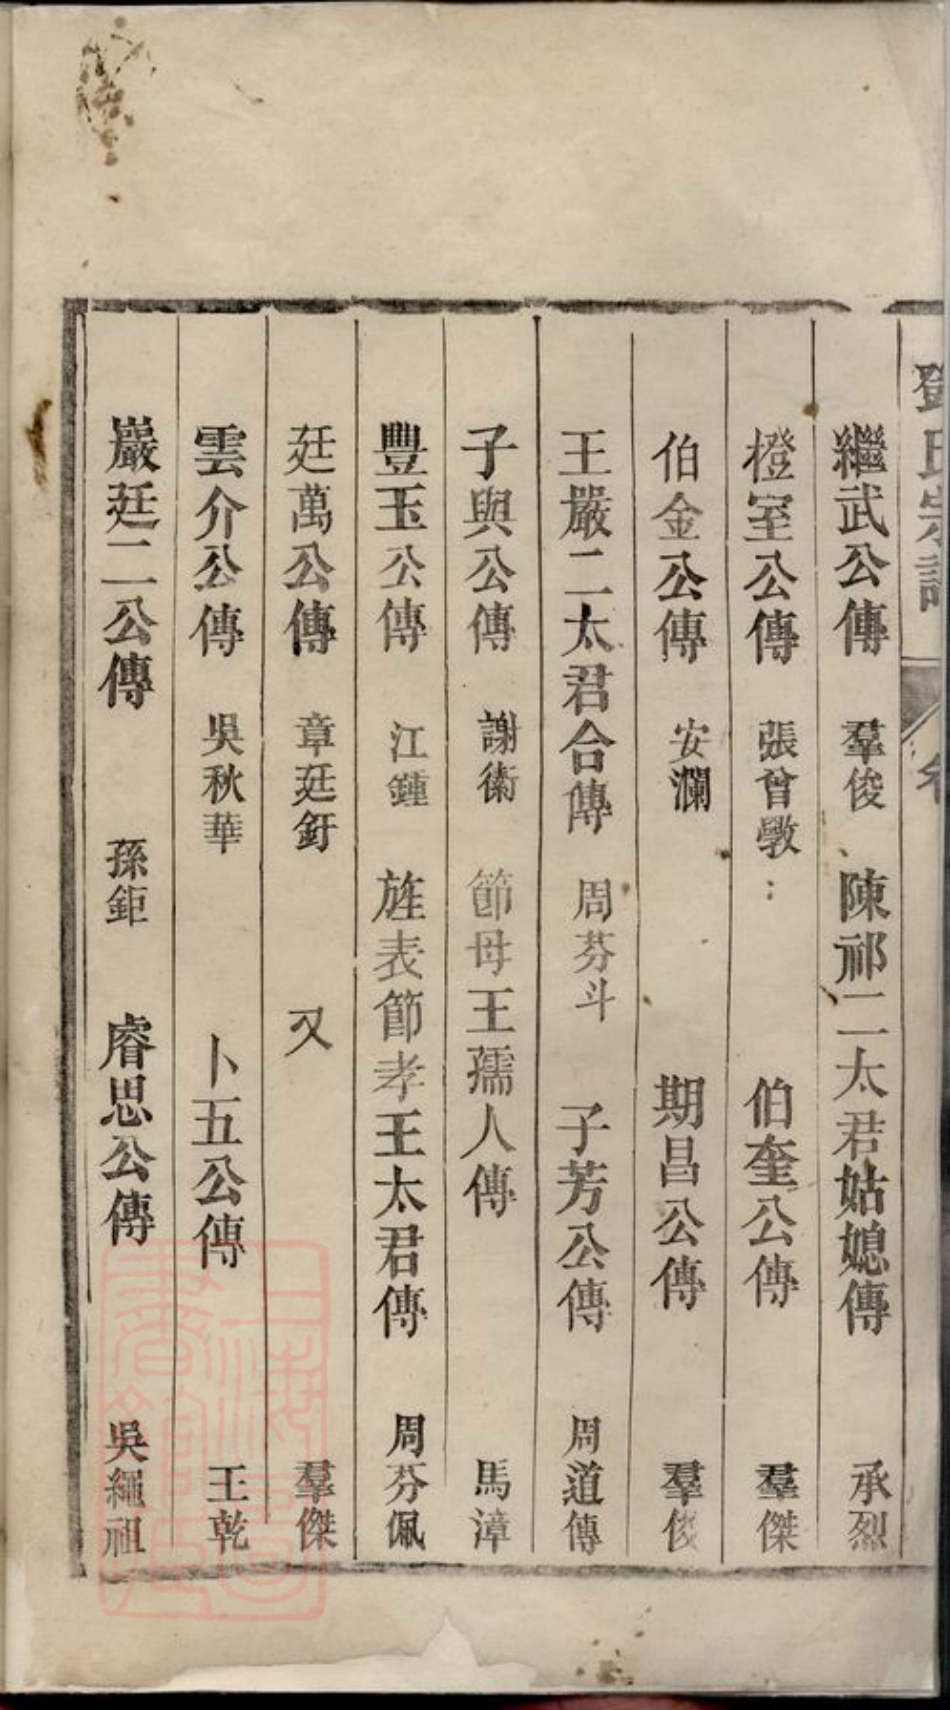 鄧氏宗譜
繼武公傳 羣俊 陳祁二太君姑媳傳 承烈
橙室公傳 張曾敭 伯奎公傳 羣傑
伯金公傳 安瀾 期昌公傳 羣俊
王嚴二太君合傳 周芬斗 子芳公傳 周道傳
子與公傳 謝衞 節母王孺人傳 馬漳
豐玉公傳 江鍾 旌表節孝王太君傳 周芬佩
廷萬公傳 章廷釪 又 羣傑
雲介公傳 吳秋華 卜五公傳 王乾
巖廷二公傳 孫鉅 睿思公傳 吳繩祖
上海圖書館藏